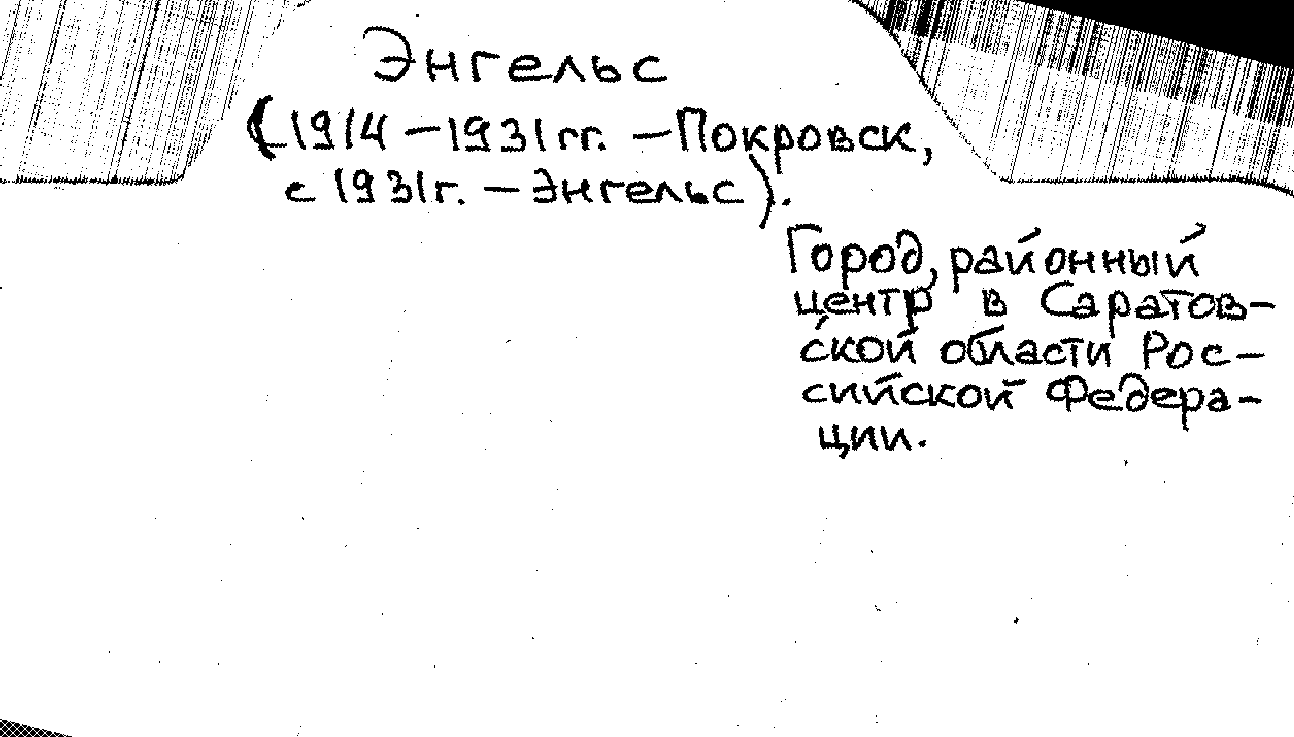 Энгельс
(1914 – 1931 гг. – Покровск,
с 1931г. – Энгельс).
Город, районный
центр в Саратов-
ской области Рос-
сийской Федера-
ции.